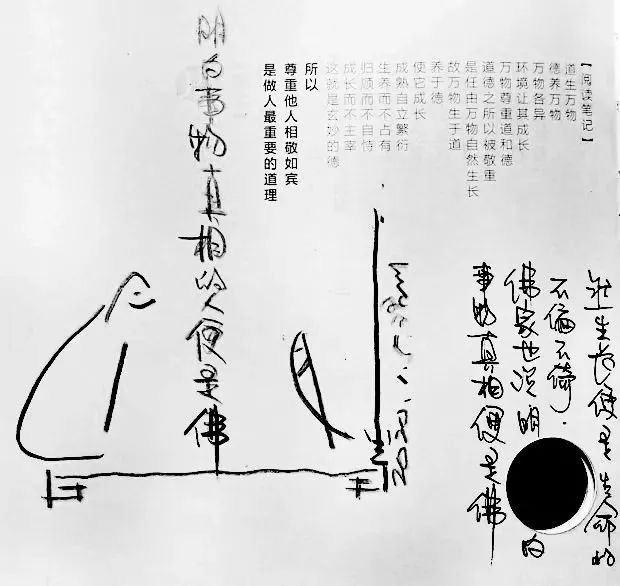 【阅读笔记】
道生万物
德养万物
万物各异
环境让其成长
万物尊重道和德
道德之所以被敬重
是任由万物自然生长
故万物生于道
养于德
使它成长
成熟自立繁衍
生养而不占有
归顺而不自恃
成长而不主宰
这就是玄妙的德
所以
尊重他人相敬如宾
是做人最重要的道理
明白事物真相的人便是佛
生长便是生命的
不偏不倚.
佛家也说明 的
事物真相便是佛